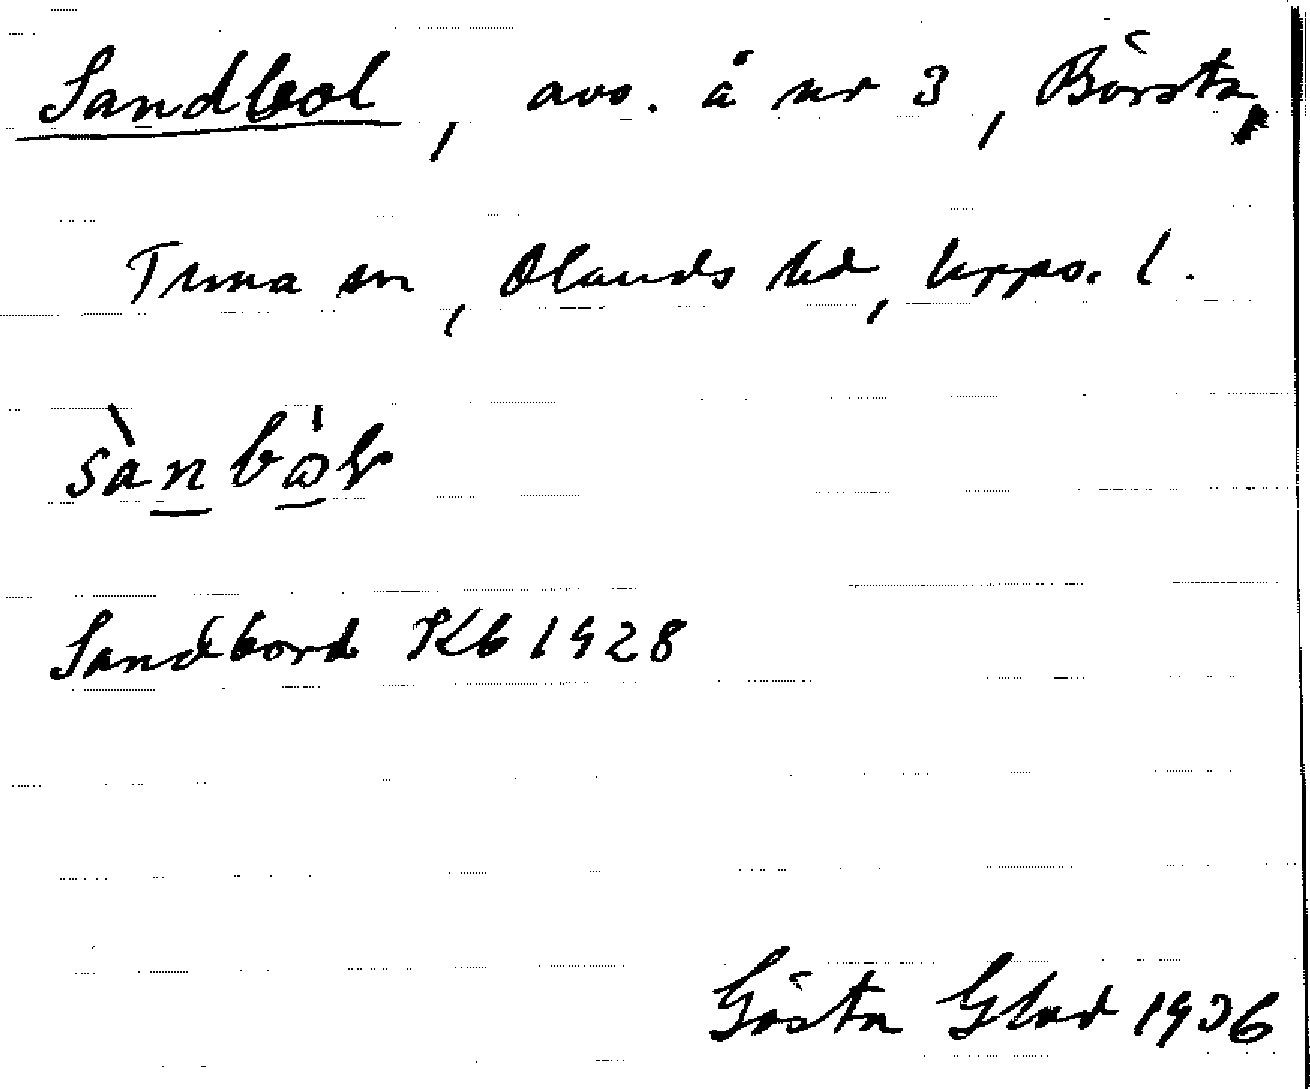 Sandbol, avs. å nr 3, Börsta,
Tuna sn, Olands hd, Upps. l.
Sandbord Kb 1928
Gösta Glad 1936